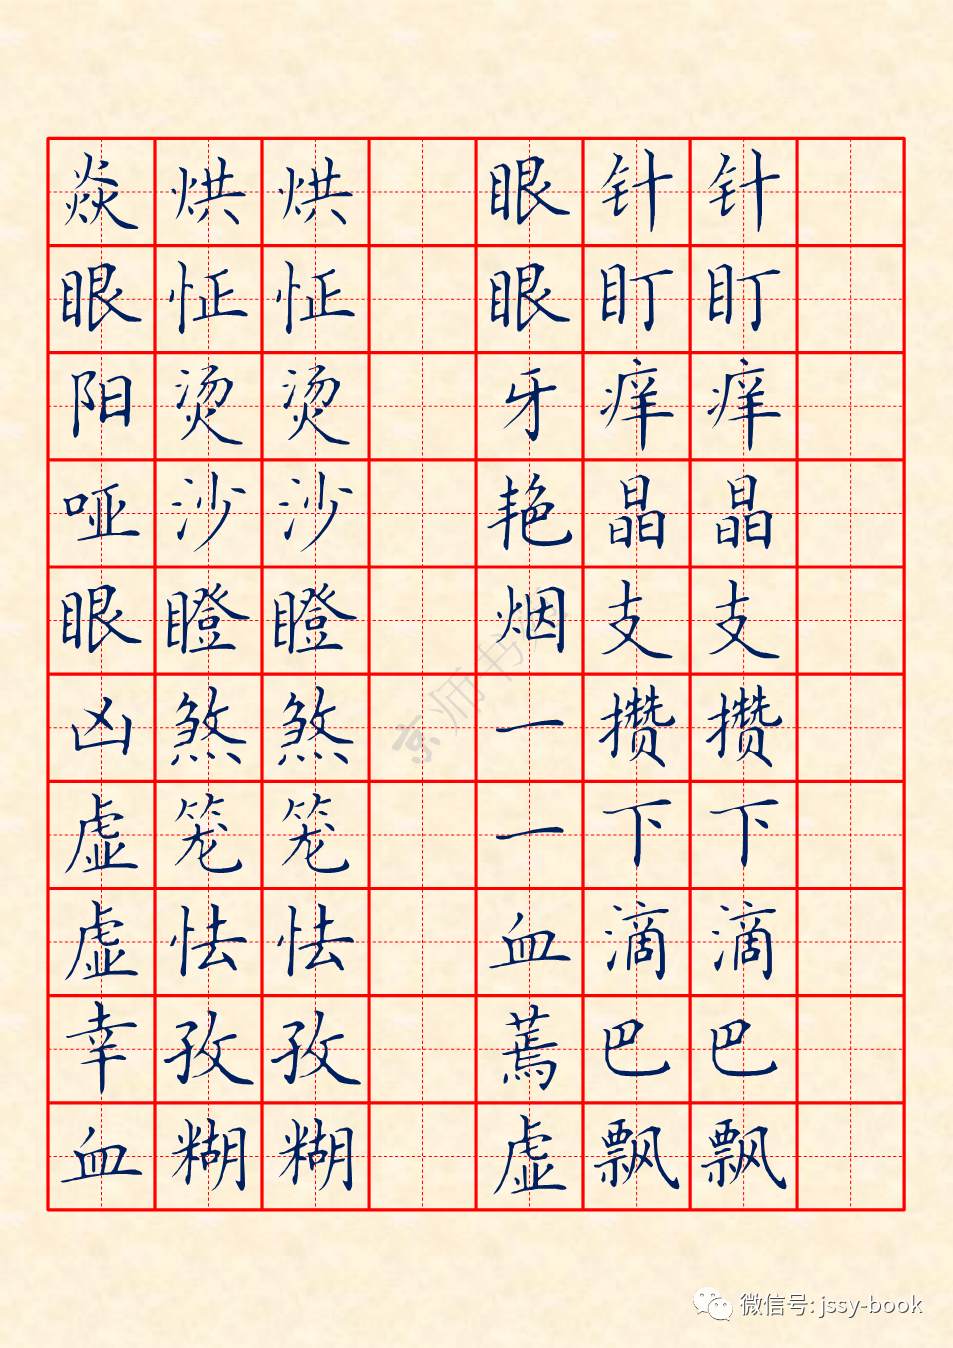 焱烘烘 眼针针
眼怔怔 眼盯盯
阳烫烫 牙痒痒
哑沙沙 艳晶晶
眼瞪瞪 烟支支
凶煞煞 一攒攒
虚笼笼 一下下
虚怯怯 血滴滴
幸孜孜 蔫巴巴
血糊糊 虚飘飘
京师书
微信号: jssy-book